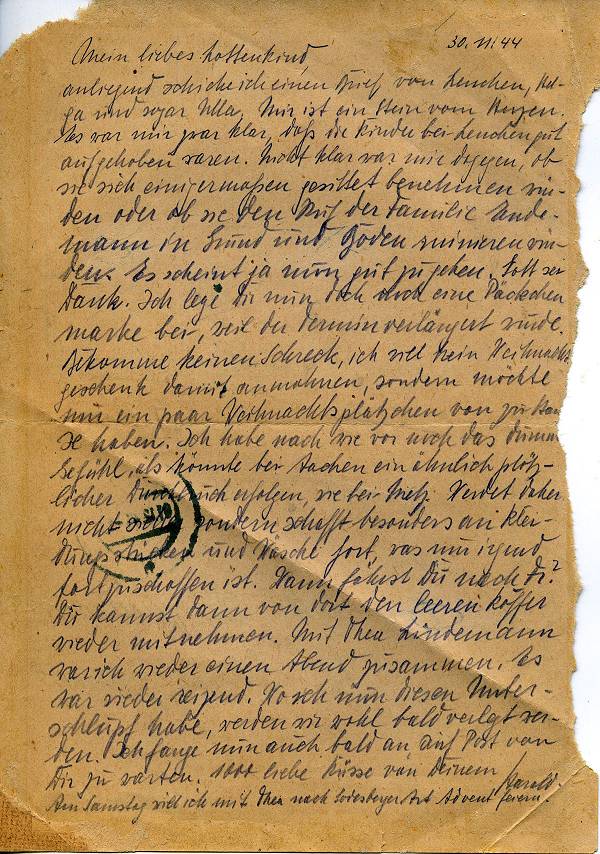 30.11.44
Mein liebes Lottenkind,
anliegend schicke ich einen Brief von Lenchen, Hel-
ga und sogar Ulla. Mir ist ein Stein vom Herzen.
Es war mir zwar klar, daß die Kinder bei Lenchen gut
aufgehoben waren. Nicht klar war mir dagegen, ob
sie sich einigermaßen gesittet benehmen wür-
den oder ob sie den Ruf der Familie Linde-
mann in Grund und Boden ruinieren wür-
den. Es scheint ja nun gut zu gehen. Gott sei
Dank. Ich lege Dir nun doch noch eine Päckchen
marke bei, weil der Termin verlängert wurde.
Bekomme keinen Schreck, ich will kein Weihnachts
geschenk damit anmahnen, sondern möchte
nur ein paar Weihnachtsplätzchen von zu Hau
se haben. Ich habe nach wie vor noch das dumme
Gefühl, als könnte bei Aachen ein ähnlich plötz-
licher Durchbruch erfolgen, wie bei Metz. Wartet daher
nicht sondern schafft besonders an Klei-
dungsstücken und Wäsche fort, was nur irgend
fortzuschaffen ist. Wann fährst Du nach
Du kannst dann von dort den leeren Koffer
wieder mitnehmen. Mit Thea Lindemann
war ich wieder einen Abend zusammen. Es
war wieder reizend. Wo ich nun diesen Unter-
schlupf habe, werden wir wohl bald verlegt wer-
den. Ich fange nun auch bald an auf Post von
Dir zu warten. 1000 liebe Küsse von Deinem Harald.
Am Samstag will ich mit Thea nach Art Advent feiern.